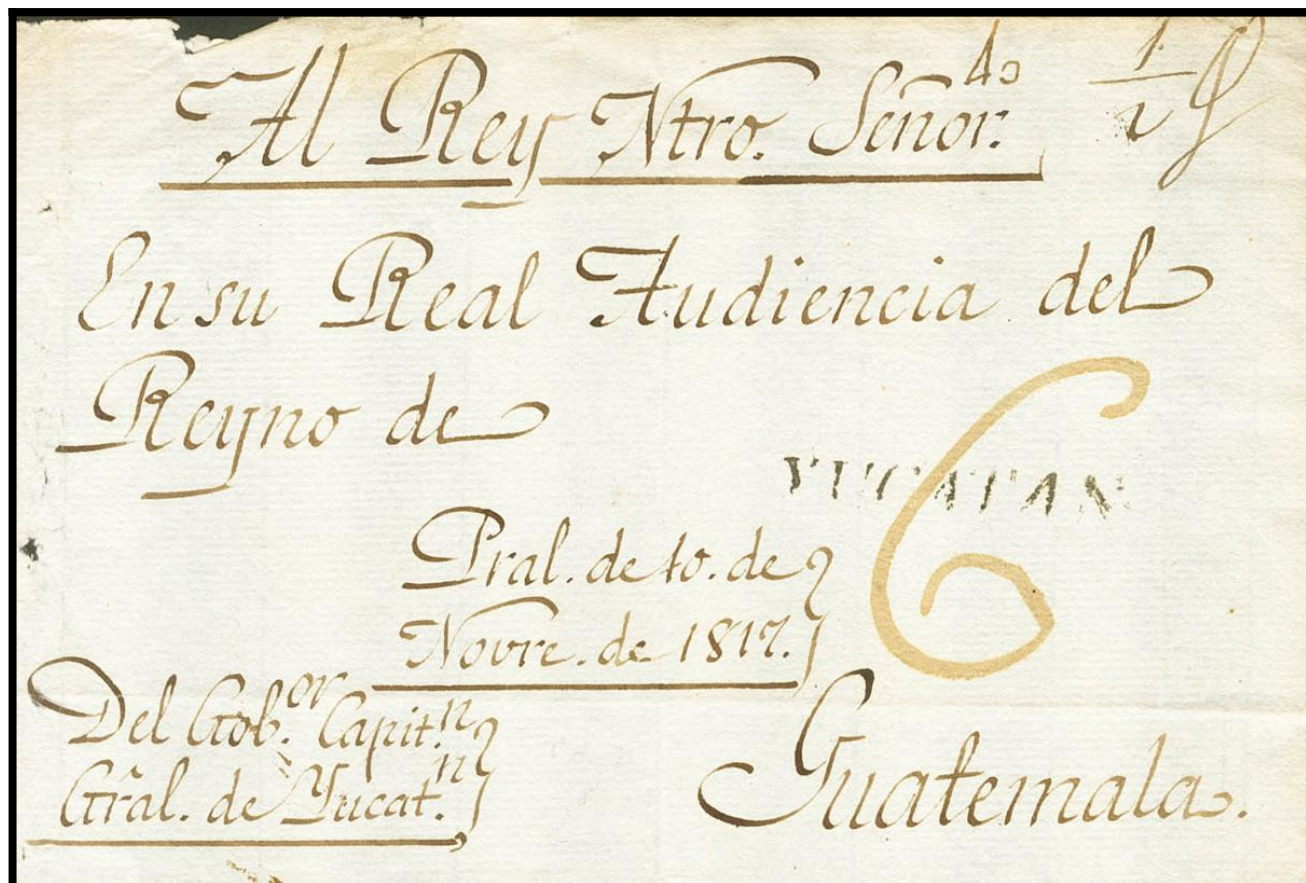 Al Rey Ntro. Señor.
1/2
En su Real Audiencia del
Reyno de
YUCATAN
6
Pral. de 10. de
Novre. de 1817.
Del Gob.or Capit.n
Gral. de Yucat.n
Guatemala.